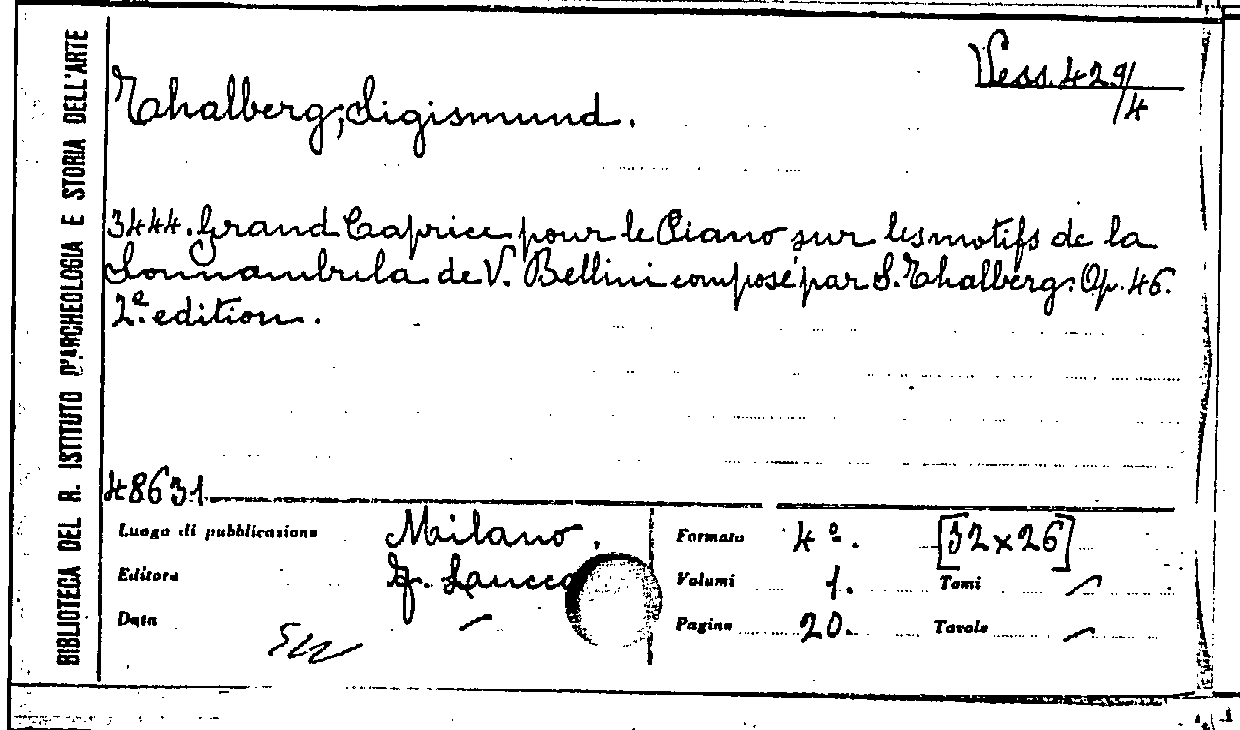 BIBLIOTECA DEL R. ISTITUTO D'ARCHEOLOGIA E STORIA DELL'ARTE
Vess. 429/4
Thalberg, Sigismund.
3444. Grand Caprice pour le Piano sur les motifs de la
Sonnambula de V. Bellini composé par S. Thalberg. Op. 46.
2.e edition.
48631
Luogo di pubblicazione Milano. Formato 4º. [32x26]
Editore F. Lucca Volumi 1. Tomi —
Data — Pagine 20. Tavole —